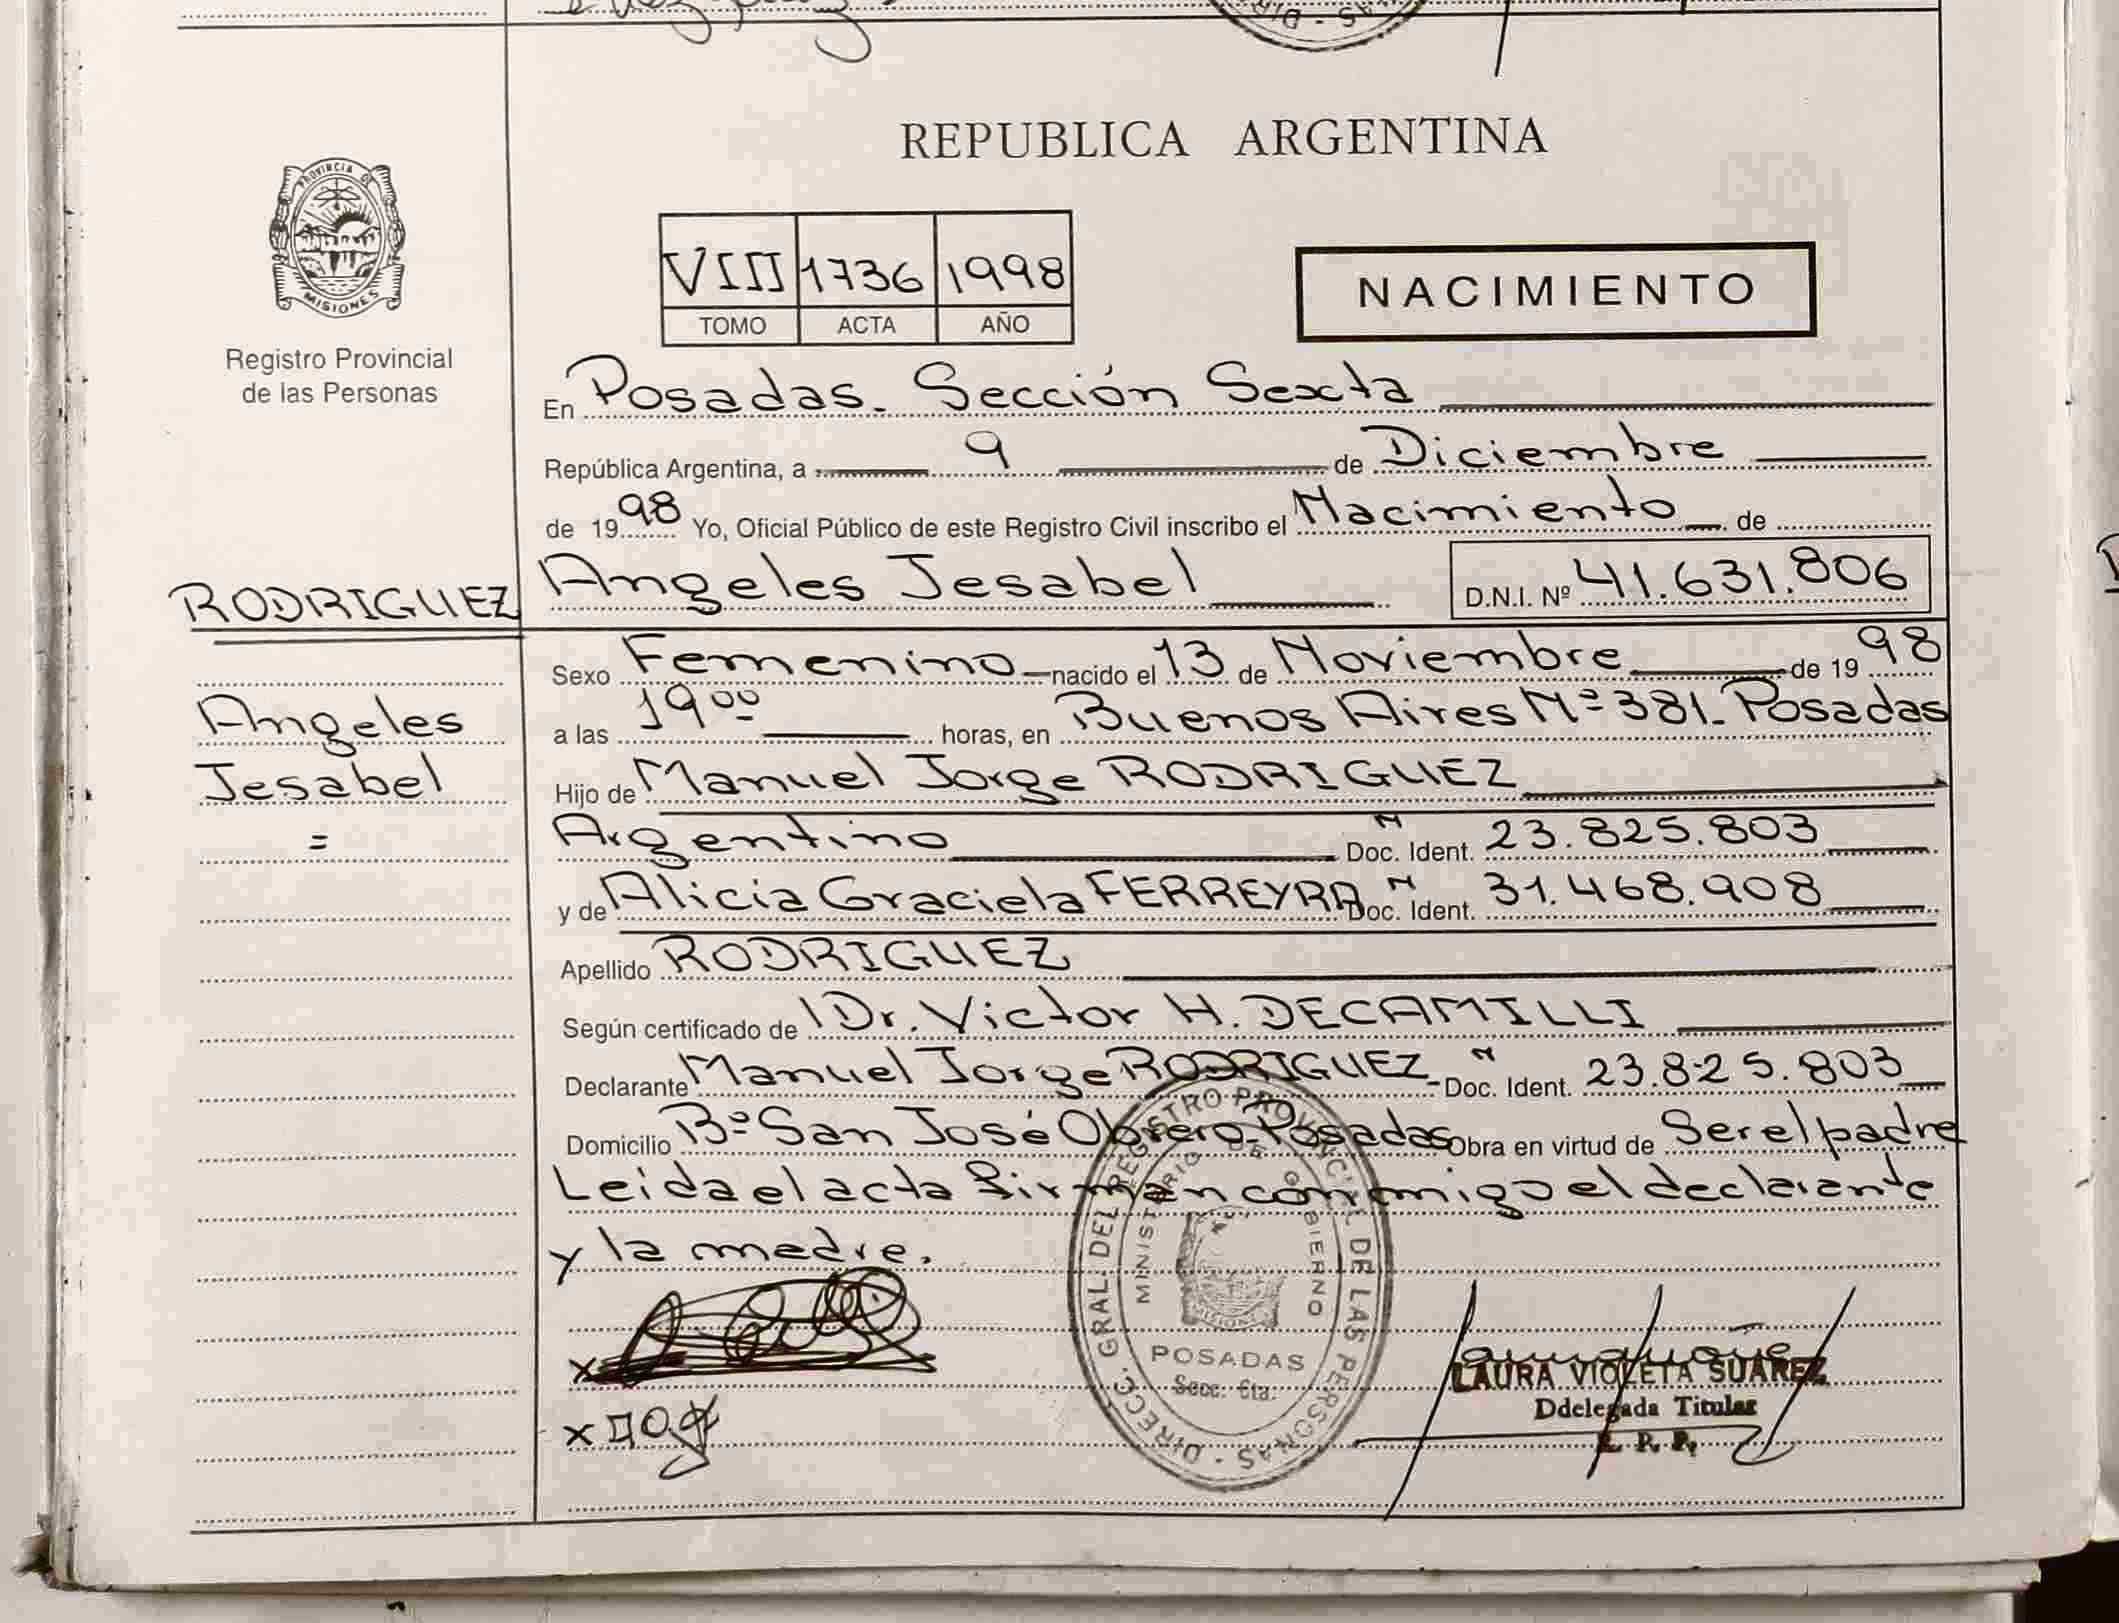 REPUBLICA ARGENTINA
PROVINCIA DE
MISIONES
Registro Provincial
de las Personas
VIII 1736 1998
TOMO ACTA AÑO
NACIMIENTO
En Posadas. Sección Sexta
República Argentina, a 9 de Diciembre
de 1998 Yo, Oficial Público de este Registro Civil inscribo el Nacimiento de
RODRIGUEZ Angeles Jesabel D.N.I. Nº 41.631.806
Sexo Femenino nacido el 13 de Noviembre de 1998
Angeles
a las 19 00 horas, en Buenos Aires Nº 381. Posadas
Jesabel
Hijo de Manuel Jorge RODRIGUEZ
=
Argentino Doc. Ident. 23.825.803
y de Alicia Graciela FERREYRA Doc. Ident. 31.468.908
Apellido RODRIGUEZ
Según certificado de Dr. Victor H. DECAMILLI
Declarante Manuel Jorge RODRIGUEZ Doc. Ident. 23.825.803
Domicilio Bº San José Obrero-Posadas Obra en virtud de Ser el padre
Leida el acta firman conmigo el declarante
y la madre.
DIREC. GRAL. DEL REGISTRO PROVINCIAL DE LAS PERSONAS
MINISTERIO DE GOBIERNO
MISIONES
POSADAS
Secc. 6ta.
LAURA VIOLETA SUAREZ
Ddelegada Titular
R. P. P.